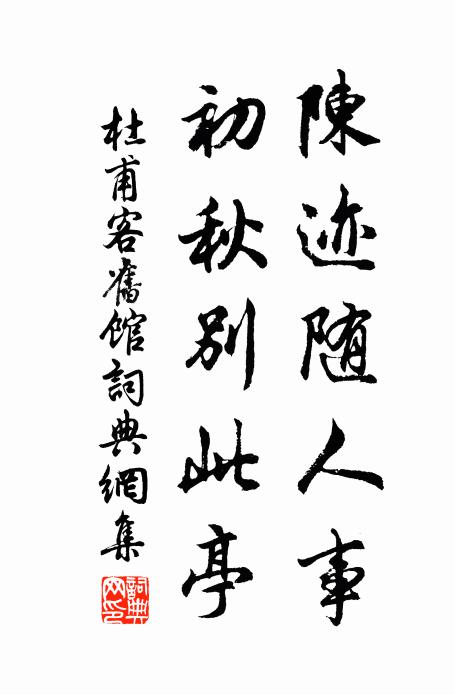 陳迹随人事
初秋别此亭
杜甫客舊館詞典網集
詞典網印